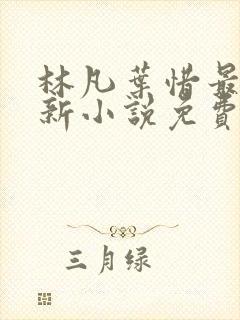 林凡葉惜最
新小說免費
三月绿